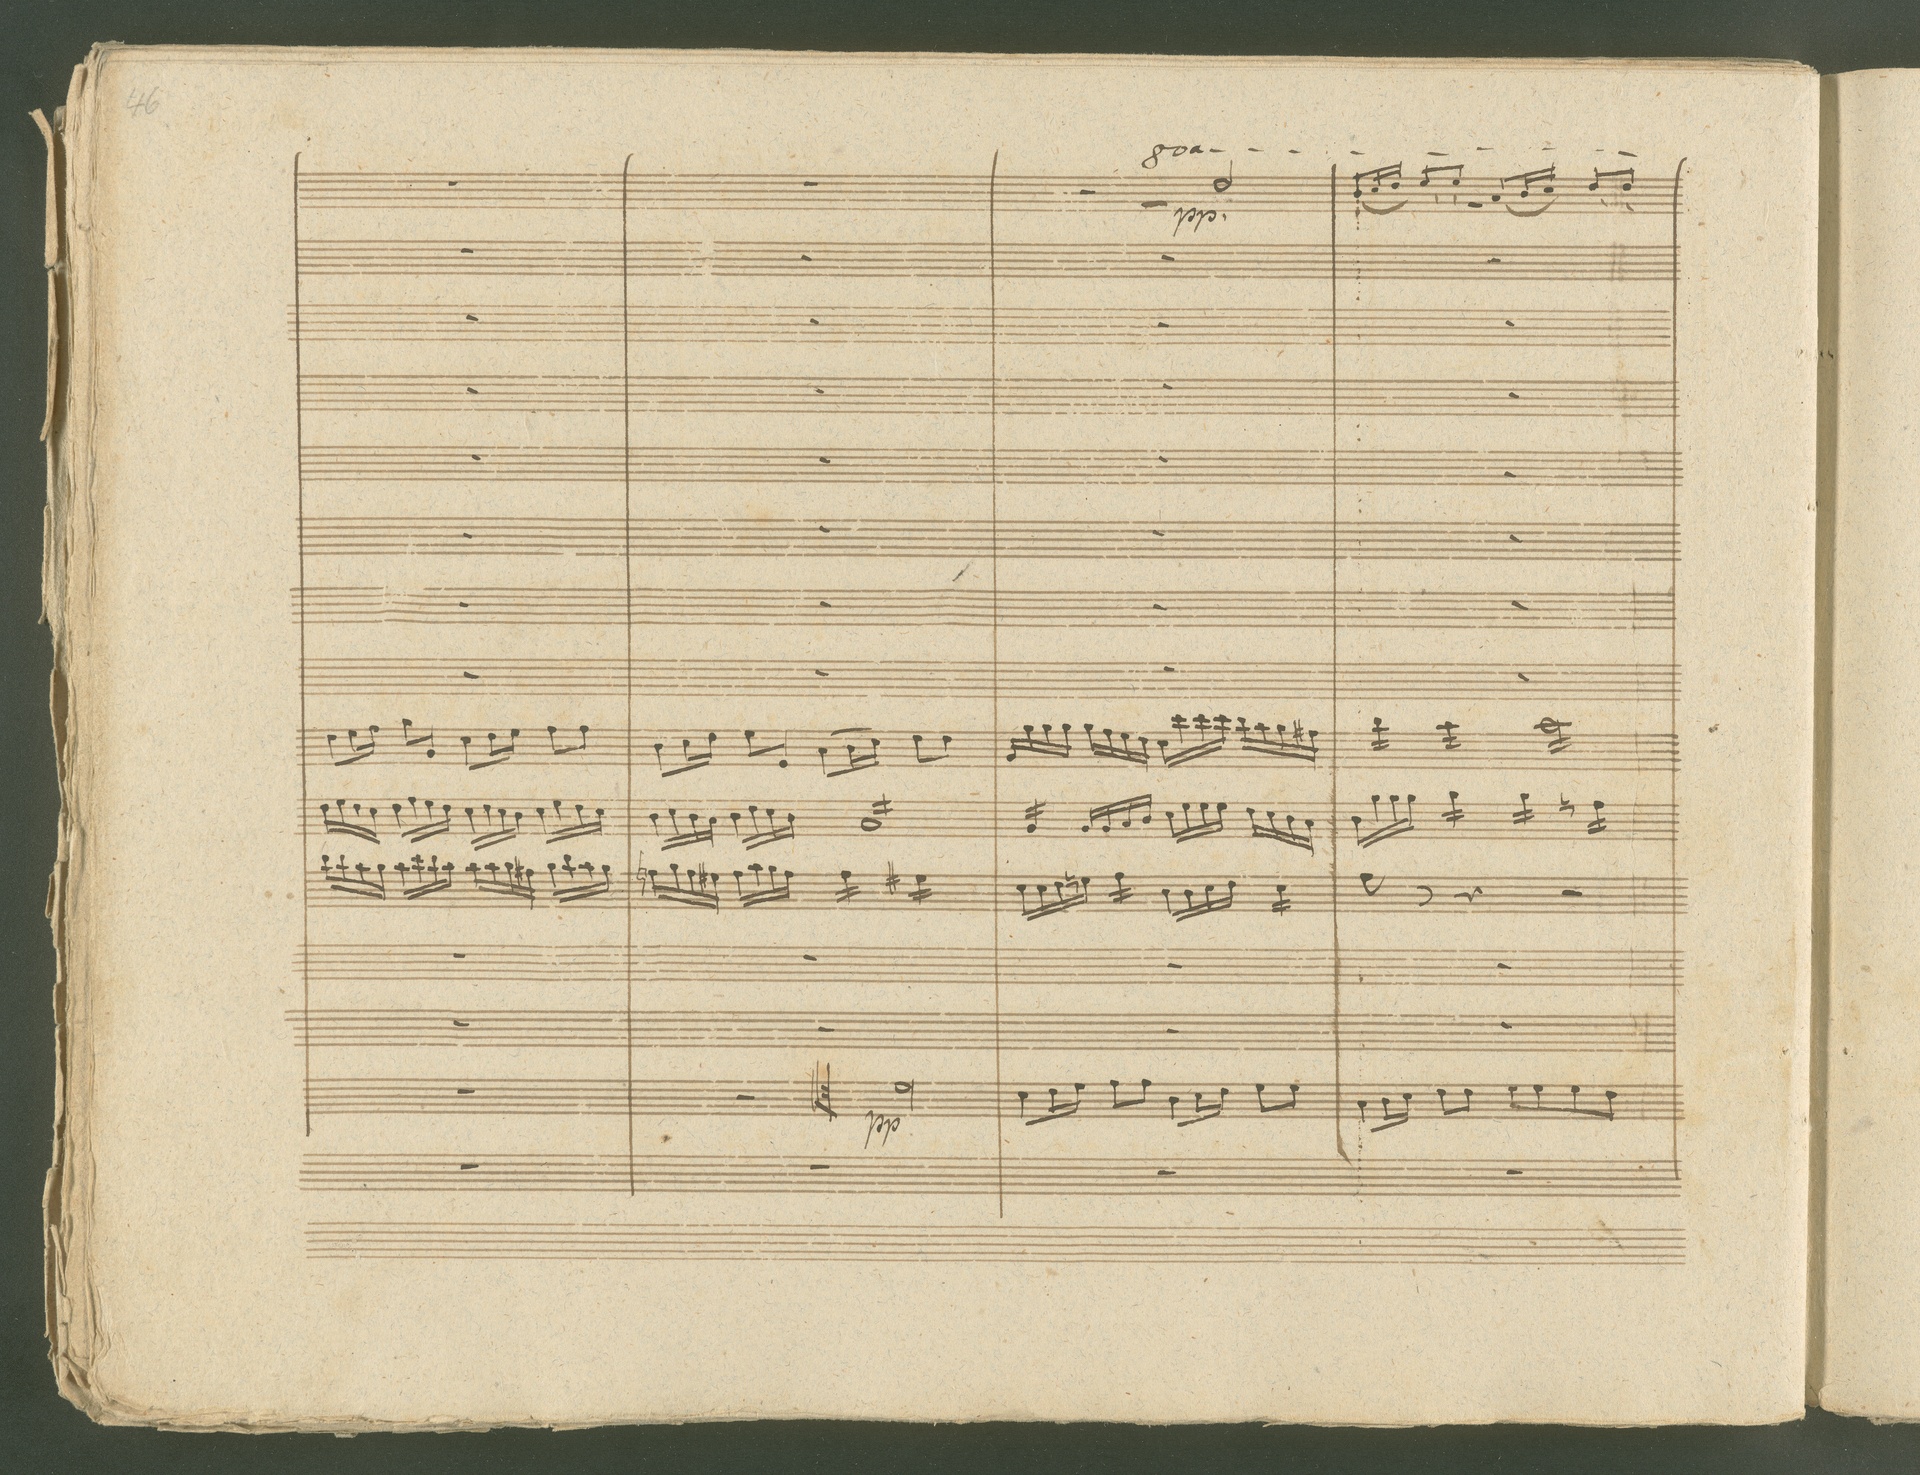 46
8va
pp.
pp